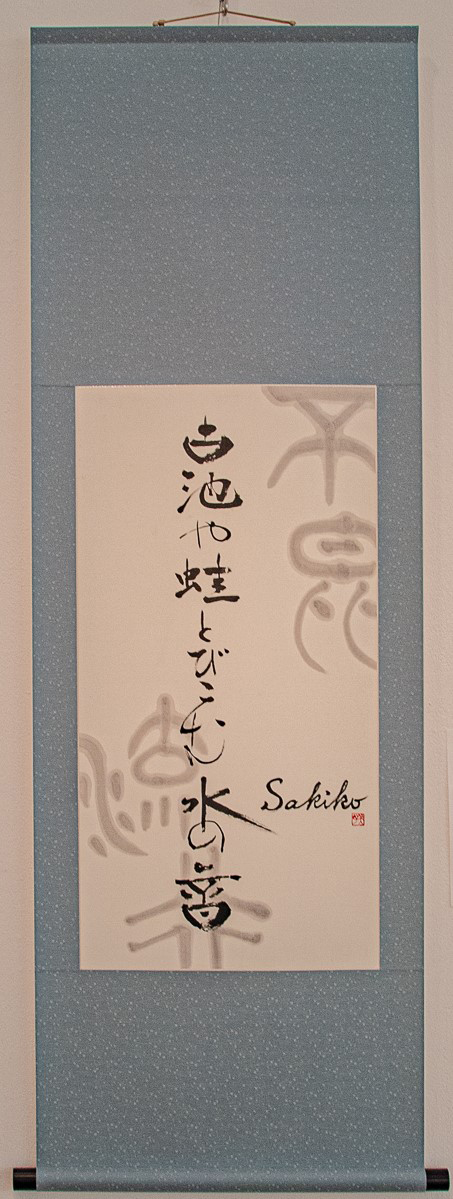 古池や蛙とびこむ水の音
Sakiko